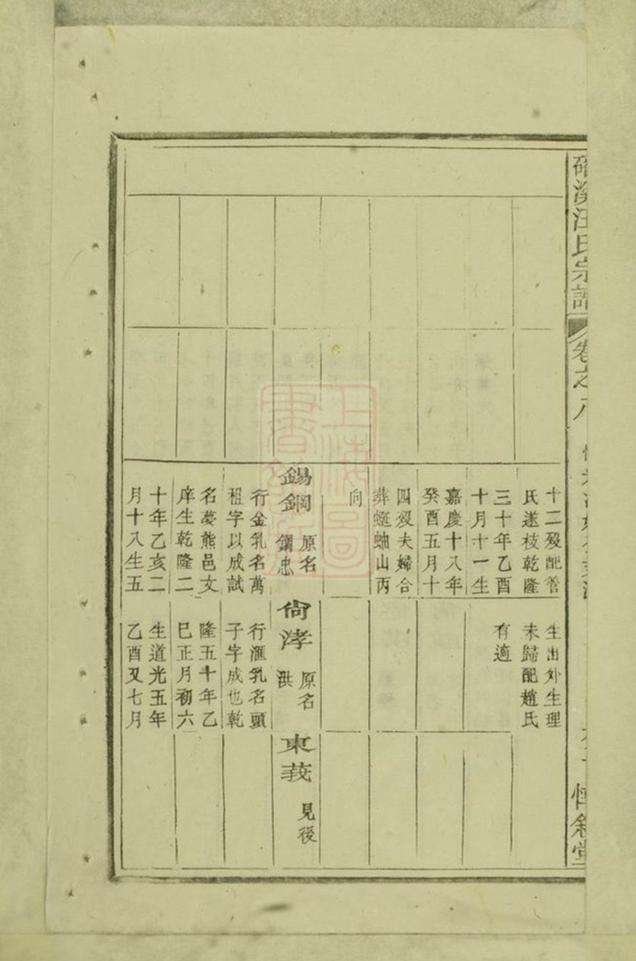 汪氏宗譜
卷之八
惇敘堂
十二歿配管
氏遂枝乾隆
三十年乙酉
十月十一生
嘉慶十八年
癸酉五月十
四歿夫婦合
葬蜒蚰山丙
向
生出外生理
未歸配趙氏
有適
錫鋼 原名鑼忠
行金乳名萬
祖字以成試
名夢熊邑文
庠生乾隆二
十年乙亥二
月十八生五
尙渟 原名洪
行滙乳名頭
子字成也乾
隆五十年乙
巳正月初六
生道光五年
乙酉又七月
東莪 見後